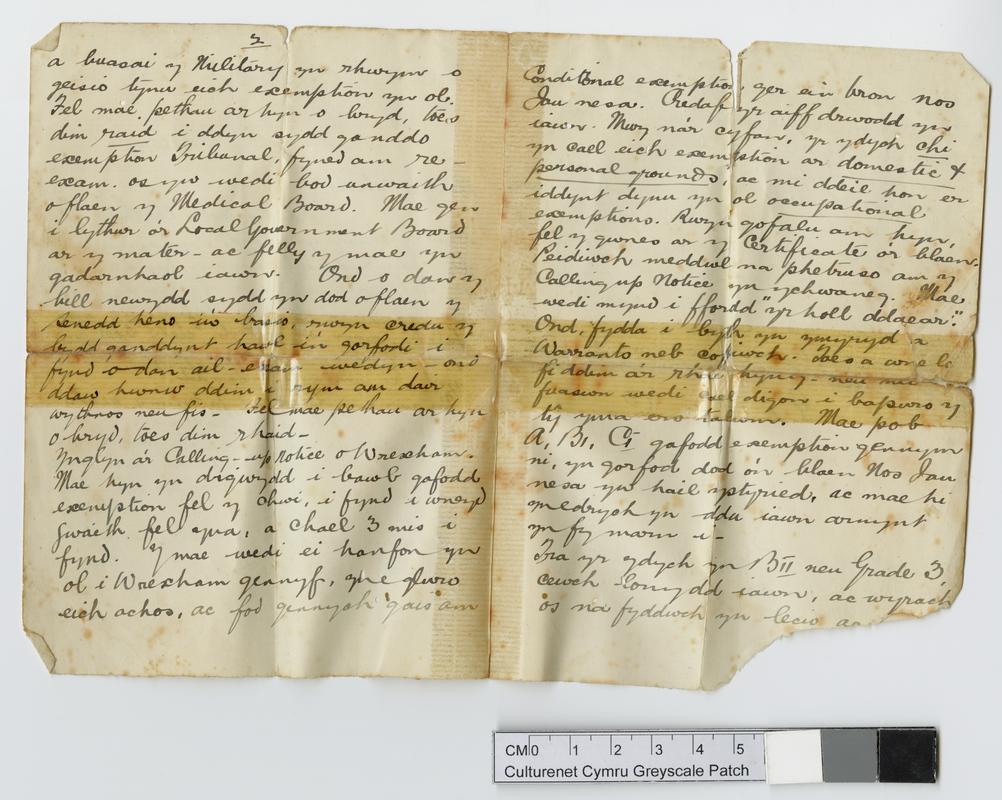 2
a buasai y Military yn rhwym o
geisio tynu eich exemption yn ol.
Fel mae pethau ar hyn o bryd, toes
dim raid i ddyn sydd ganddo
exemption Tribunal, fyned am re-
exam. os yw wedi bod unwaith
o flaen y Medical Board. Mae gen
i lythur o'r Local Government Board
ar y mater - ac felly y mae yn
gadarnhaol iawn. Ond o dan y
bill newydd sydd yn dod o flaen y
Senedd heno i'w basio, rwyn credu y
bydd ganddynt hawl i'n gorfodi i
fynd o dan ail-exam wedyn - ond
ddaw hwnw ddim i rym am dair
wythnos neu fis - Fel mae pethau ar hyn
o bryd, toes dim rhaid -
Ynglyn a'r Calling-up Notice o Wrexham.
Mae hyn yn digwydd i bawb gafodd
exemption fel y chwi, i fynd i wneyd
gwaith fel yna, a chael 3 mis i
fynd. Y mae wedi ei hanfon yn
ol i Wrexham gennyf, yn egluro
eich achos, ac fod gennych gais am
Conditional exemption, ger ein bron nos
Iau nesa. Credaf yr aiff drwodd yn
iawn. Mwy na'r cyfan, yr ydych chi
yn cael eich exemption ar domestic &
personal grounds, ac mi ddeil hon er
iddynt dynu yn ol occupational
exemptions. Rwyn gofalu am hyn,
fel y gwnes ar y Certificate o'r blaen.
Peidiwch meddwl na phetruso am y
Calling up Notice yn ychwaneg. Mae
wedi mynd i ffordd "yr holl ddaear".
Ond, fydda i byth yn ymyryd a
Warrants neb coeliwch. Does a wnelo
fi ddim a'r rhai hyny - neu mi
fuaswn wedi cael digon i bapuro y
tŷ yma ers talwm. Mae pob
A, B1, C1 gafodd exemption gennym
ni, yn gorfod dod o'n blaen Nos Iau
nesa yn hail ystyried, ac mae hi
yn edrych yn ddu iawn arnynt
yn fy marn i -
Tra yr ydych yn BII neu Grade 3,
cewch lonydd iawn, ac wyrach
os na fyddwch yn lecio